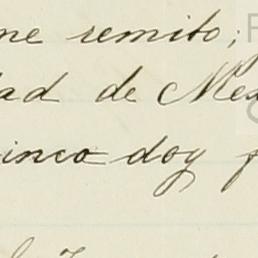 me remito;
dad de Me
inco doy f